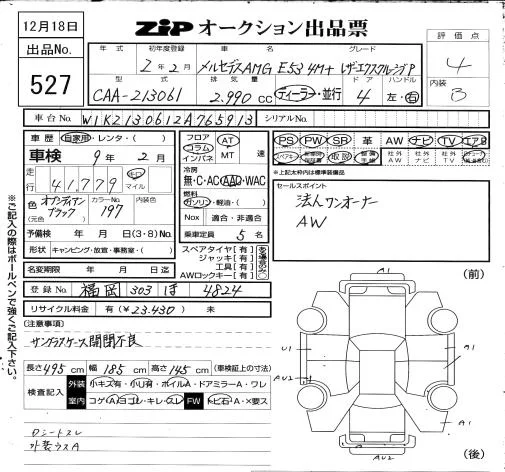 12月18日
出品No.
527
ZIP オークション出品票
評価点
4
内装
B
年式 初年度登録 車名 グレード
2年2月 メルセデスAMG E53 4M+
型式 排気量 ドア ハンドル
CAA-213061 2.990cc ディーラー・並行 4 左・右
車台No. W1K2130612A765913 シリアルNo.
車歴 自家用・レンタ・( )
車検 9年2月
走行 41.779 キロ マイル
色 (元色) オブシディアンブラック カラーNo. 197 内装色
予備検 年 月 日(3・8)No.
形状 キャンピング・放宣・事務室・( )
名変期限 年 月 日迄
フロア コラム インパネ AT MT 速
冷房 無・C・AC・AAC・WAC
燃料 ガソリン・軽油・( )
Nox 適合・非適合
乗車定員 5名
スペアタイヤ【有】
ジャッキ【有】
工具【有】
AWロックキー【有】
PS PW SR 革 AW ナビ TV エアB
スペアキー 保証書 取説 整備手帳 社外AW 社外ナビ 社外TV
※上記太枠内は標準装備品
セールスポイント
法人ワンオーナー
AW
登録No. 福岡 303 ほ 4824
リサイクル料金 有(¥23.430) 未
(注意事項)
サングラスケース開閉不良
長さ495cm 幅185cm 高さ145cm (車検証上の寸法)
検査記入 外装 小キズ有・小凹有・ホイルA・ドアミラーA・ワレ
室内 コゲ(A)ヨゴレ・キレ・スレ FW トビ石・A・X要ス
Dシートスレ
外装ウスA
※ご記入の際はボールペンで強くご記入下さい。
(前)
A1
U1
AU2
A1
A1
AU2
(後)